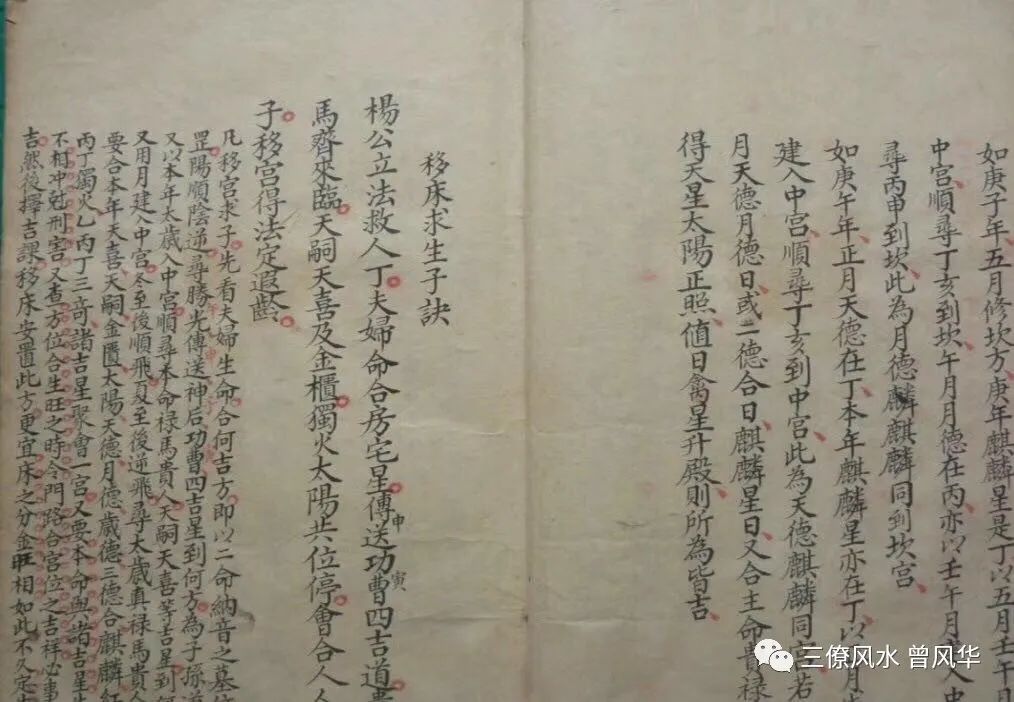 如庚子年五月修坎方庚年麒麟星是丁以五月壬午月
中宮順尋丁亥到坎午月月德在丙亦以壬午月建入中
尋丙申到坎此為月德麟麒麟同到坎宮
如庚午年正月天德在丁本年麒麟星亦在丁以月
建入中宮順尋丁亥到中宮此為天德麒麟同宮若
月天德月德日或二德合日麒麟星日又合主命貴祿
得天星太陽正照值日禽星升殿則所為皆吉
移床求生子訣
楊公立法救人丁夫婦命合房宅星傳送申功曹寅四吉道貴
馬齊來臨天嗣天喜及金櫃獨火太陽共位停會合人人
子移宮得法定遐齡
凡移宮求子先看夫婦生命合何吉方即以二命納音之墓
罡陽順陰逆尋勝光傳送神后功曹四吉星到何方為子孫道
又以本年太歲入中宮順尋本命祿馬貴人天嗣天喜等吉星到
又用月建入中宮冬至後順飛夏至後逆飛尋太歲真祿馬貴人
要合本年天喜天嗣金匱太陽天德月德歲德三德合麒麟紅
丙丁獨火乙丙丁三奇諸吉星聚會一宮又要本命與諸吉星
不相冲尅刑害又查方位合生旺之時令門路合宮位之吉祥必事
吉然後擇吉課移床安置此方更宜床之分金旺相如此不久定
三僚风水 曾风华